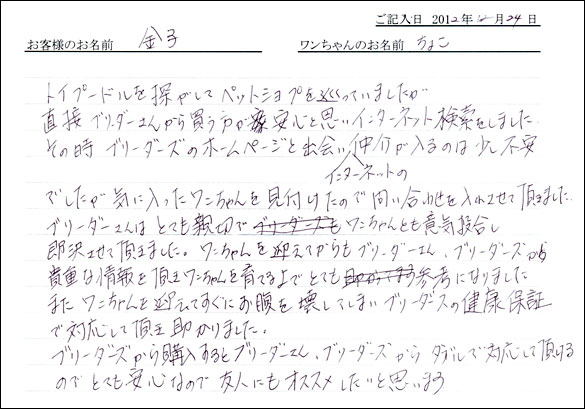 ご記入日 2012年12月24日
お客様のお名前 金子 ワンちゃんのお名前 ちょこ
トイプードルを探がしてペットショプをまわっていましたが
直接ブリーダーさんから買う方が安心と思いインターネット検索をしました
その時ブリーダーズのホームページと出会い仲介が入るのは少し不安
インターネットの
でしたが気に入ったワンちゃんを見付けたので問い合わせを入れさせて頂きました
ブリーダーさんはとても親切でワンちゃんとも意気投合し
即決させて頂きました。ワンちゃんを迎えてからもブリーダーさん、ブリーダーズから
貴重な情報を頂きワンちゃんを育てる上でとても参考になりました
またワンちゃんを迎えてすぐにお腹を壊してしまいブリーダーズの健康保証
で対応して頂き助かりました。
ブリーダーズから購入するとブリーダーさん、ブリーダーズからダブルで対応して頂ける
のでとても安心なので友人にもオススメしたいと思います